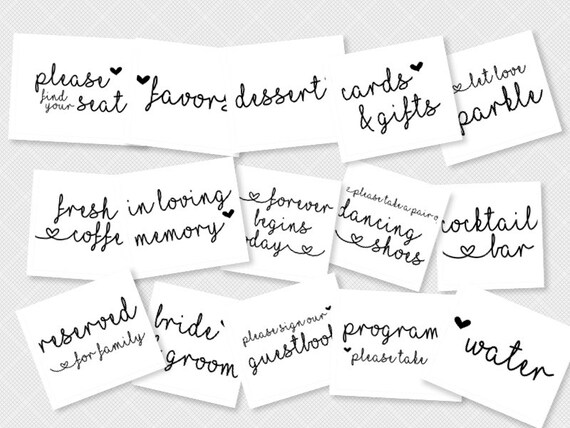 please
find
your seat
favors
dessert
cards
& gifts
let love
parkle
fresh
coffe
in loving
memory
forever
begins
oday
please take a pair o
dancing
shoes
cocktail
bar
reserved
for family
bride
& groom
please sign our
guestbook
program
please take
water